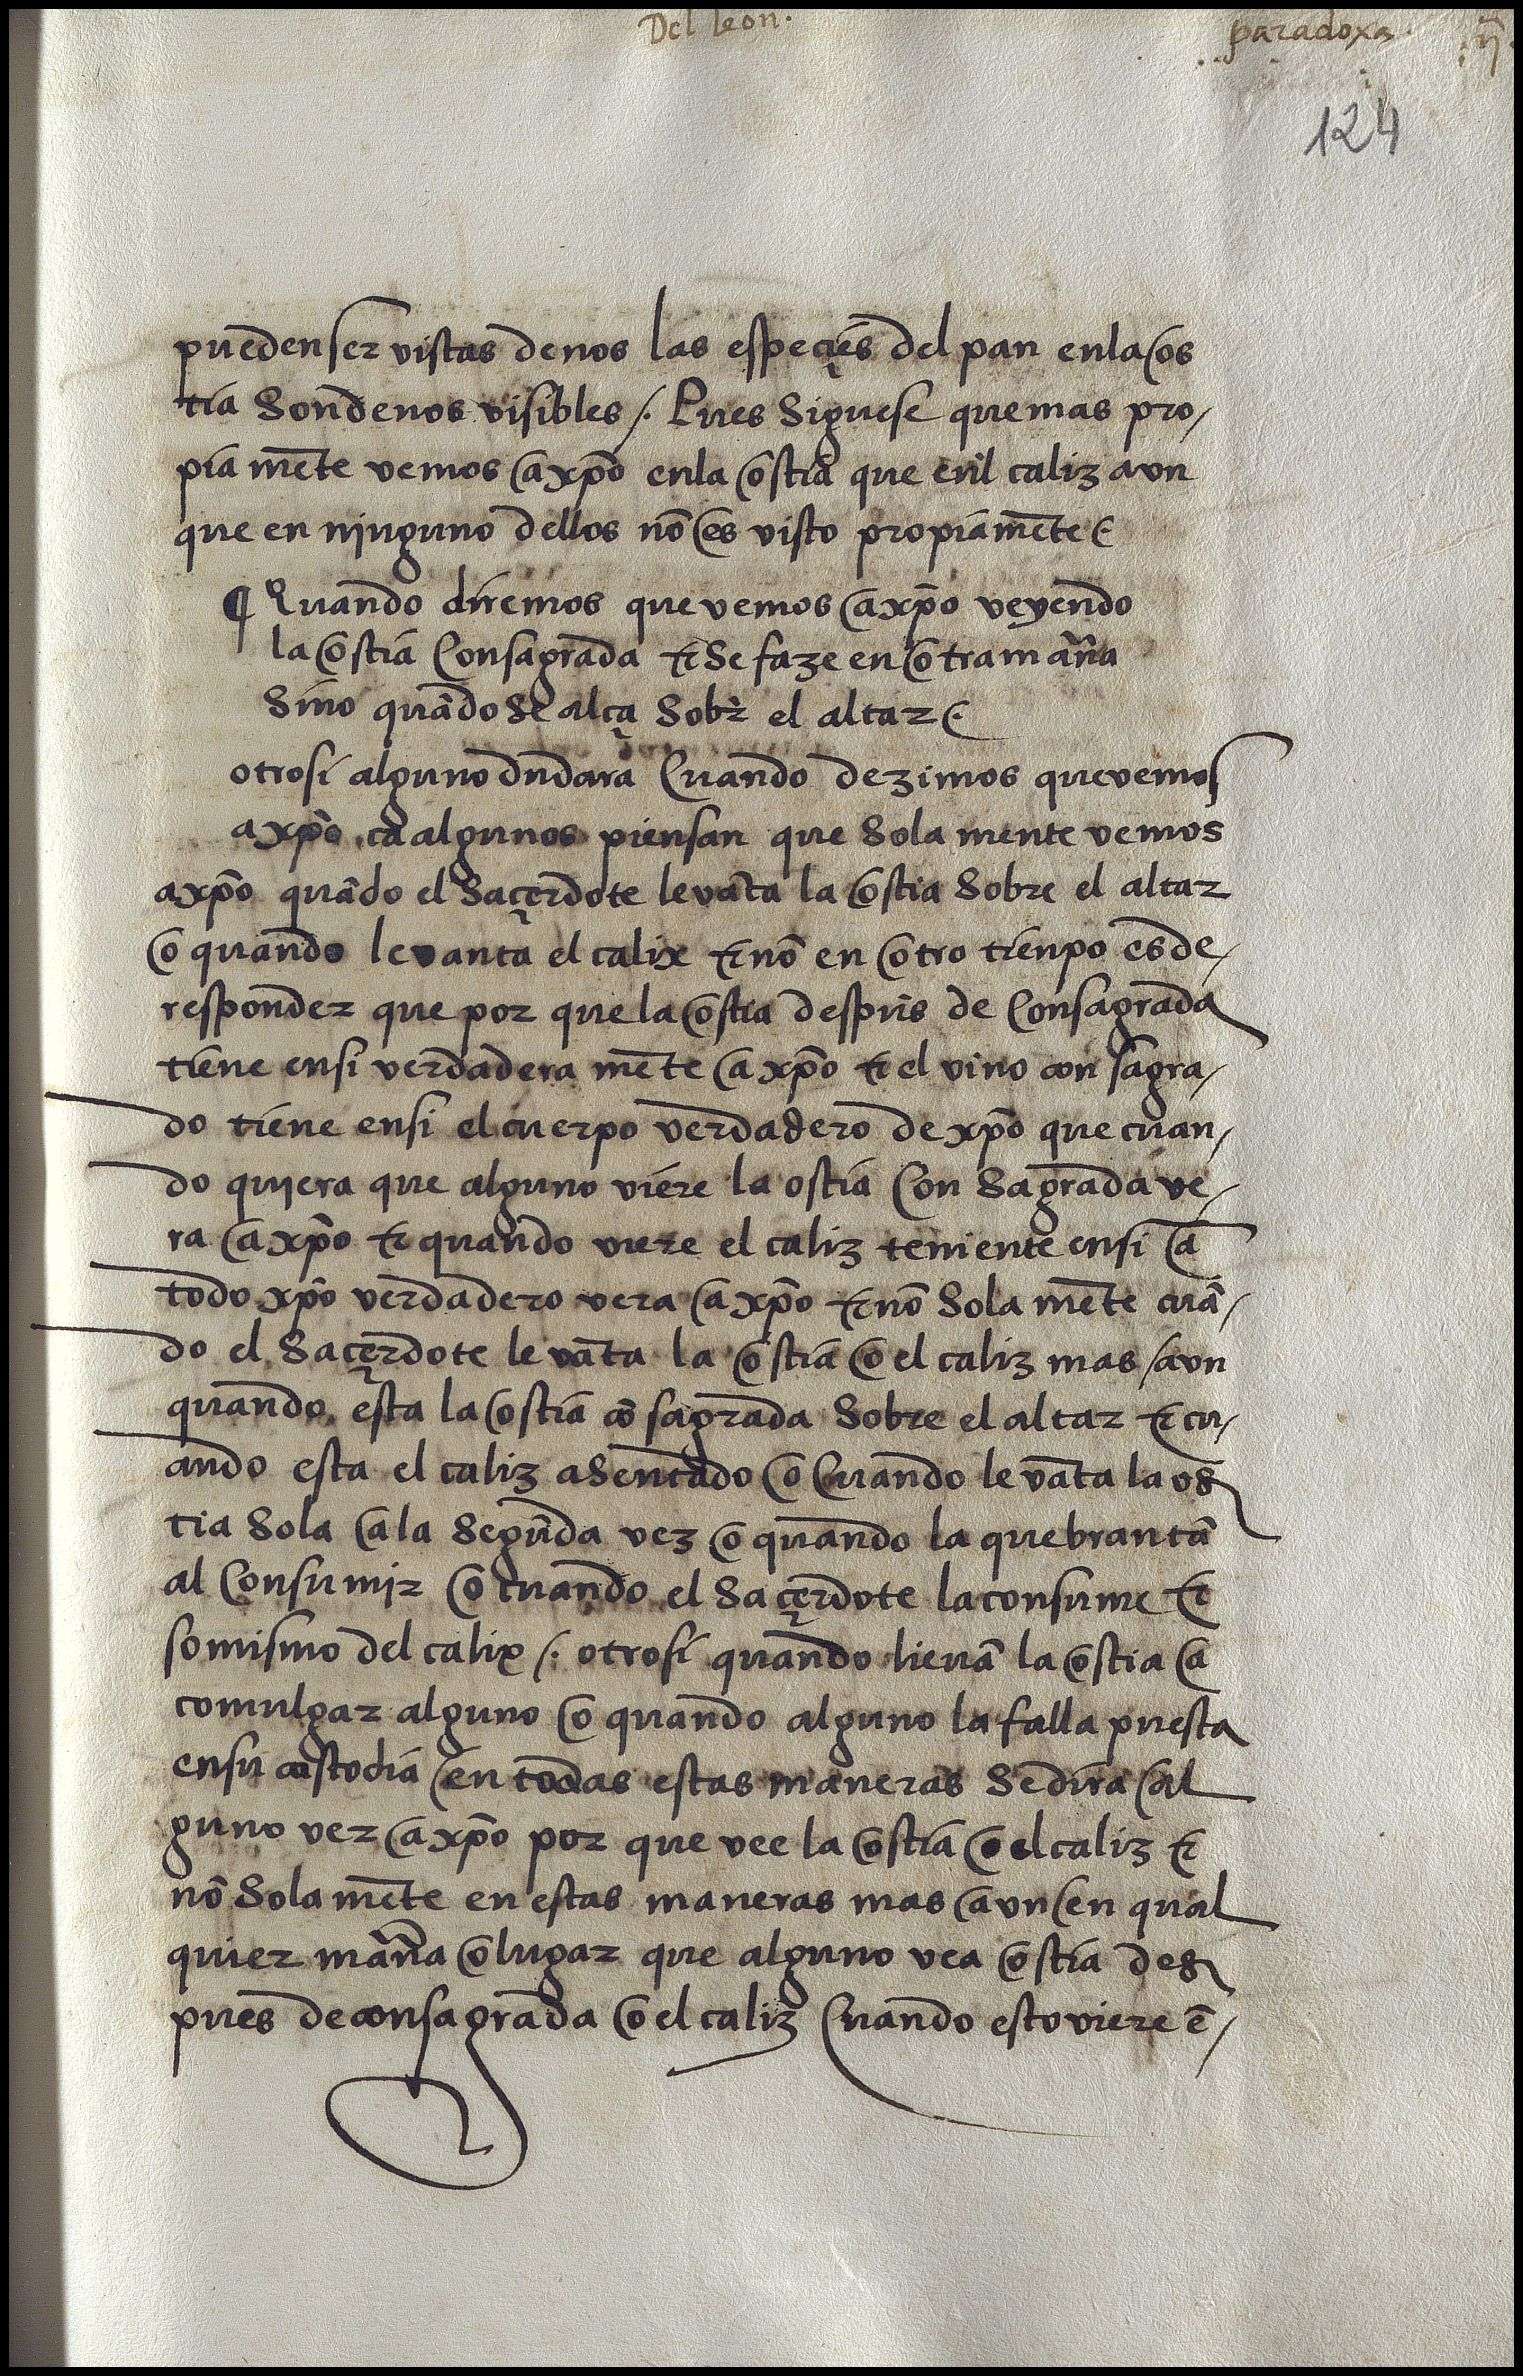 Del leon.
paradoxa ij
124
pueden ser vistas de nos las espeçies del pan en la os
tia son de nos visibles /. Pues siguese que mas pro/
pia mẽte vemos a xp̃o en la ostia que enl caliz avn
que en ninguno dellos nõ es visto propiamẽte
¶ Quando diremos que vemos a xp̃o veyendo
la ostia Consagrada τ se faze en otra mañra
sino quãdo se alça sobrẽ el altar
otrosi alguno dudara Cuando dezimos que vemos
a xp̃o ca algunos piensan que sola mente vemos
a xp̃o quãdo el saçerdote levãta la ostia sobre el altar
o quando levanta el calix τ nõ en otro tienpo es de/
responder que por que la ostia despũs de Consagrada
tiene en si verdadera mẽte a xp̃o τ el vino con sagra/
do tiene en si el cuerpo verdadero de xp̃o que cuan/
do quiera que alguno viere la ostia Con sagrada ve/
ra a xp̃o τ quando viere el caliz teniente en si a
todo xp̃o verdadero vera a xp̃o τ nõ sola mẽte cuã/
do el saçerdote levãta la ostia o el caliz mas avn
quando esta la ostia cõ sagrada sobre el altar τ cu/
ando esta el caliz asentado o Cuando levãta la os
tia sola a la segũda vez o quando la quebrantã
al Consumir o cuando el saçerdote la consume τ
so mismo del calix /. otrosi quando lievã la ostia a
comulgar alguno o quando alguno la falla puesta
en su custodia en todas estas maneras se dira al
guno ver a xp̃o por que vee la ostia o el caliz τ
nõ sola mẽte en estas maneras mas avn en qual
quier mañra o lugar que alguno vea ostia des
pues de consagrada o el caliz Cuando estoviere ẽ/